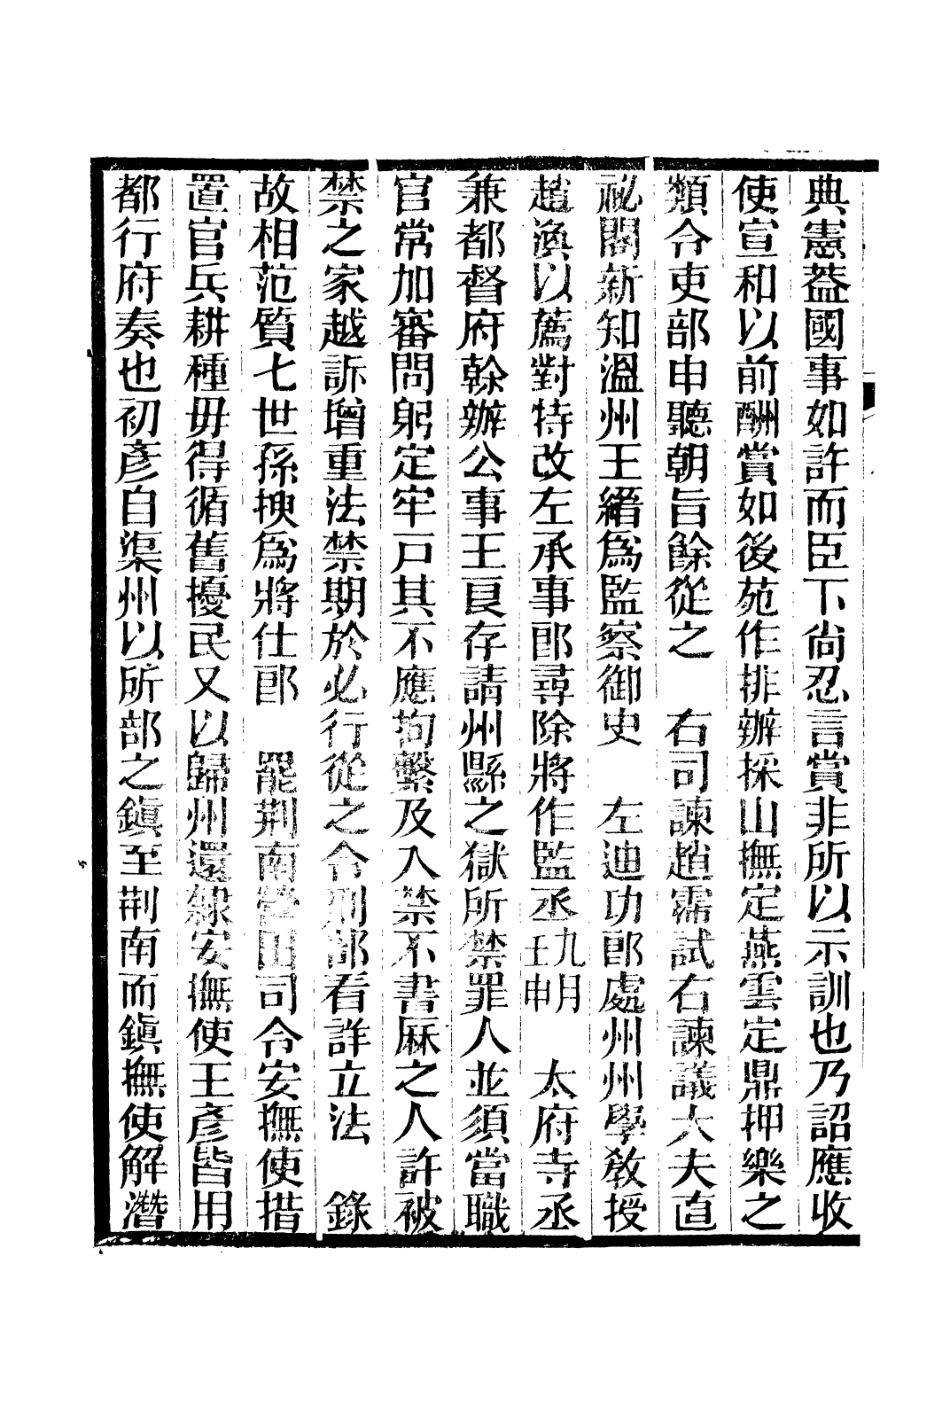 典憲葢國事如許而臣下尚忍言賞非所以示訓也乃詔應收
使宣和以前酬賞如後苑作排辦採山撫定燕雲定鼎押樂之
類令吏部申聽朝旨餘從之　右司諫趙霈試右諫議大夫直
祕閣新知溫州王縉爲監察御史　左迪功郎處州州學敎授
趙渙以薦對特改左承事郎尋除將作監丞九月壬申　太府寺丞
兼都督府幹辦公事王良存請州縣之獄所禁罪人並須當職
官常加審問躬定牢戸其不應拘繫及入禁不書厤之人許被
禁之家越訴增重法禁期於必行從之令刑部看詳立法　錄
故相范質七世孫㑨爲將仕郎　罷荆南營田司令安撫使措
置官兵耕種毋得循舊擾民又以歸州還隸安撫使王彥皆用
都行府奏也初彥自渠州以所部之鎭至荆南而鎭撫使解潛